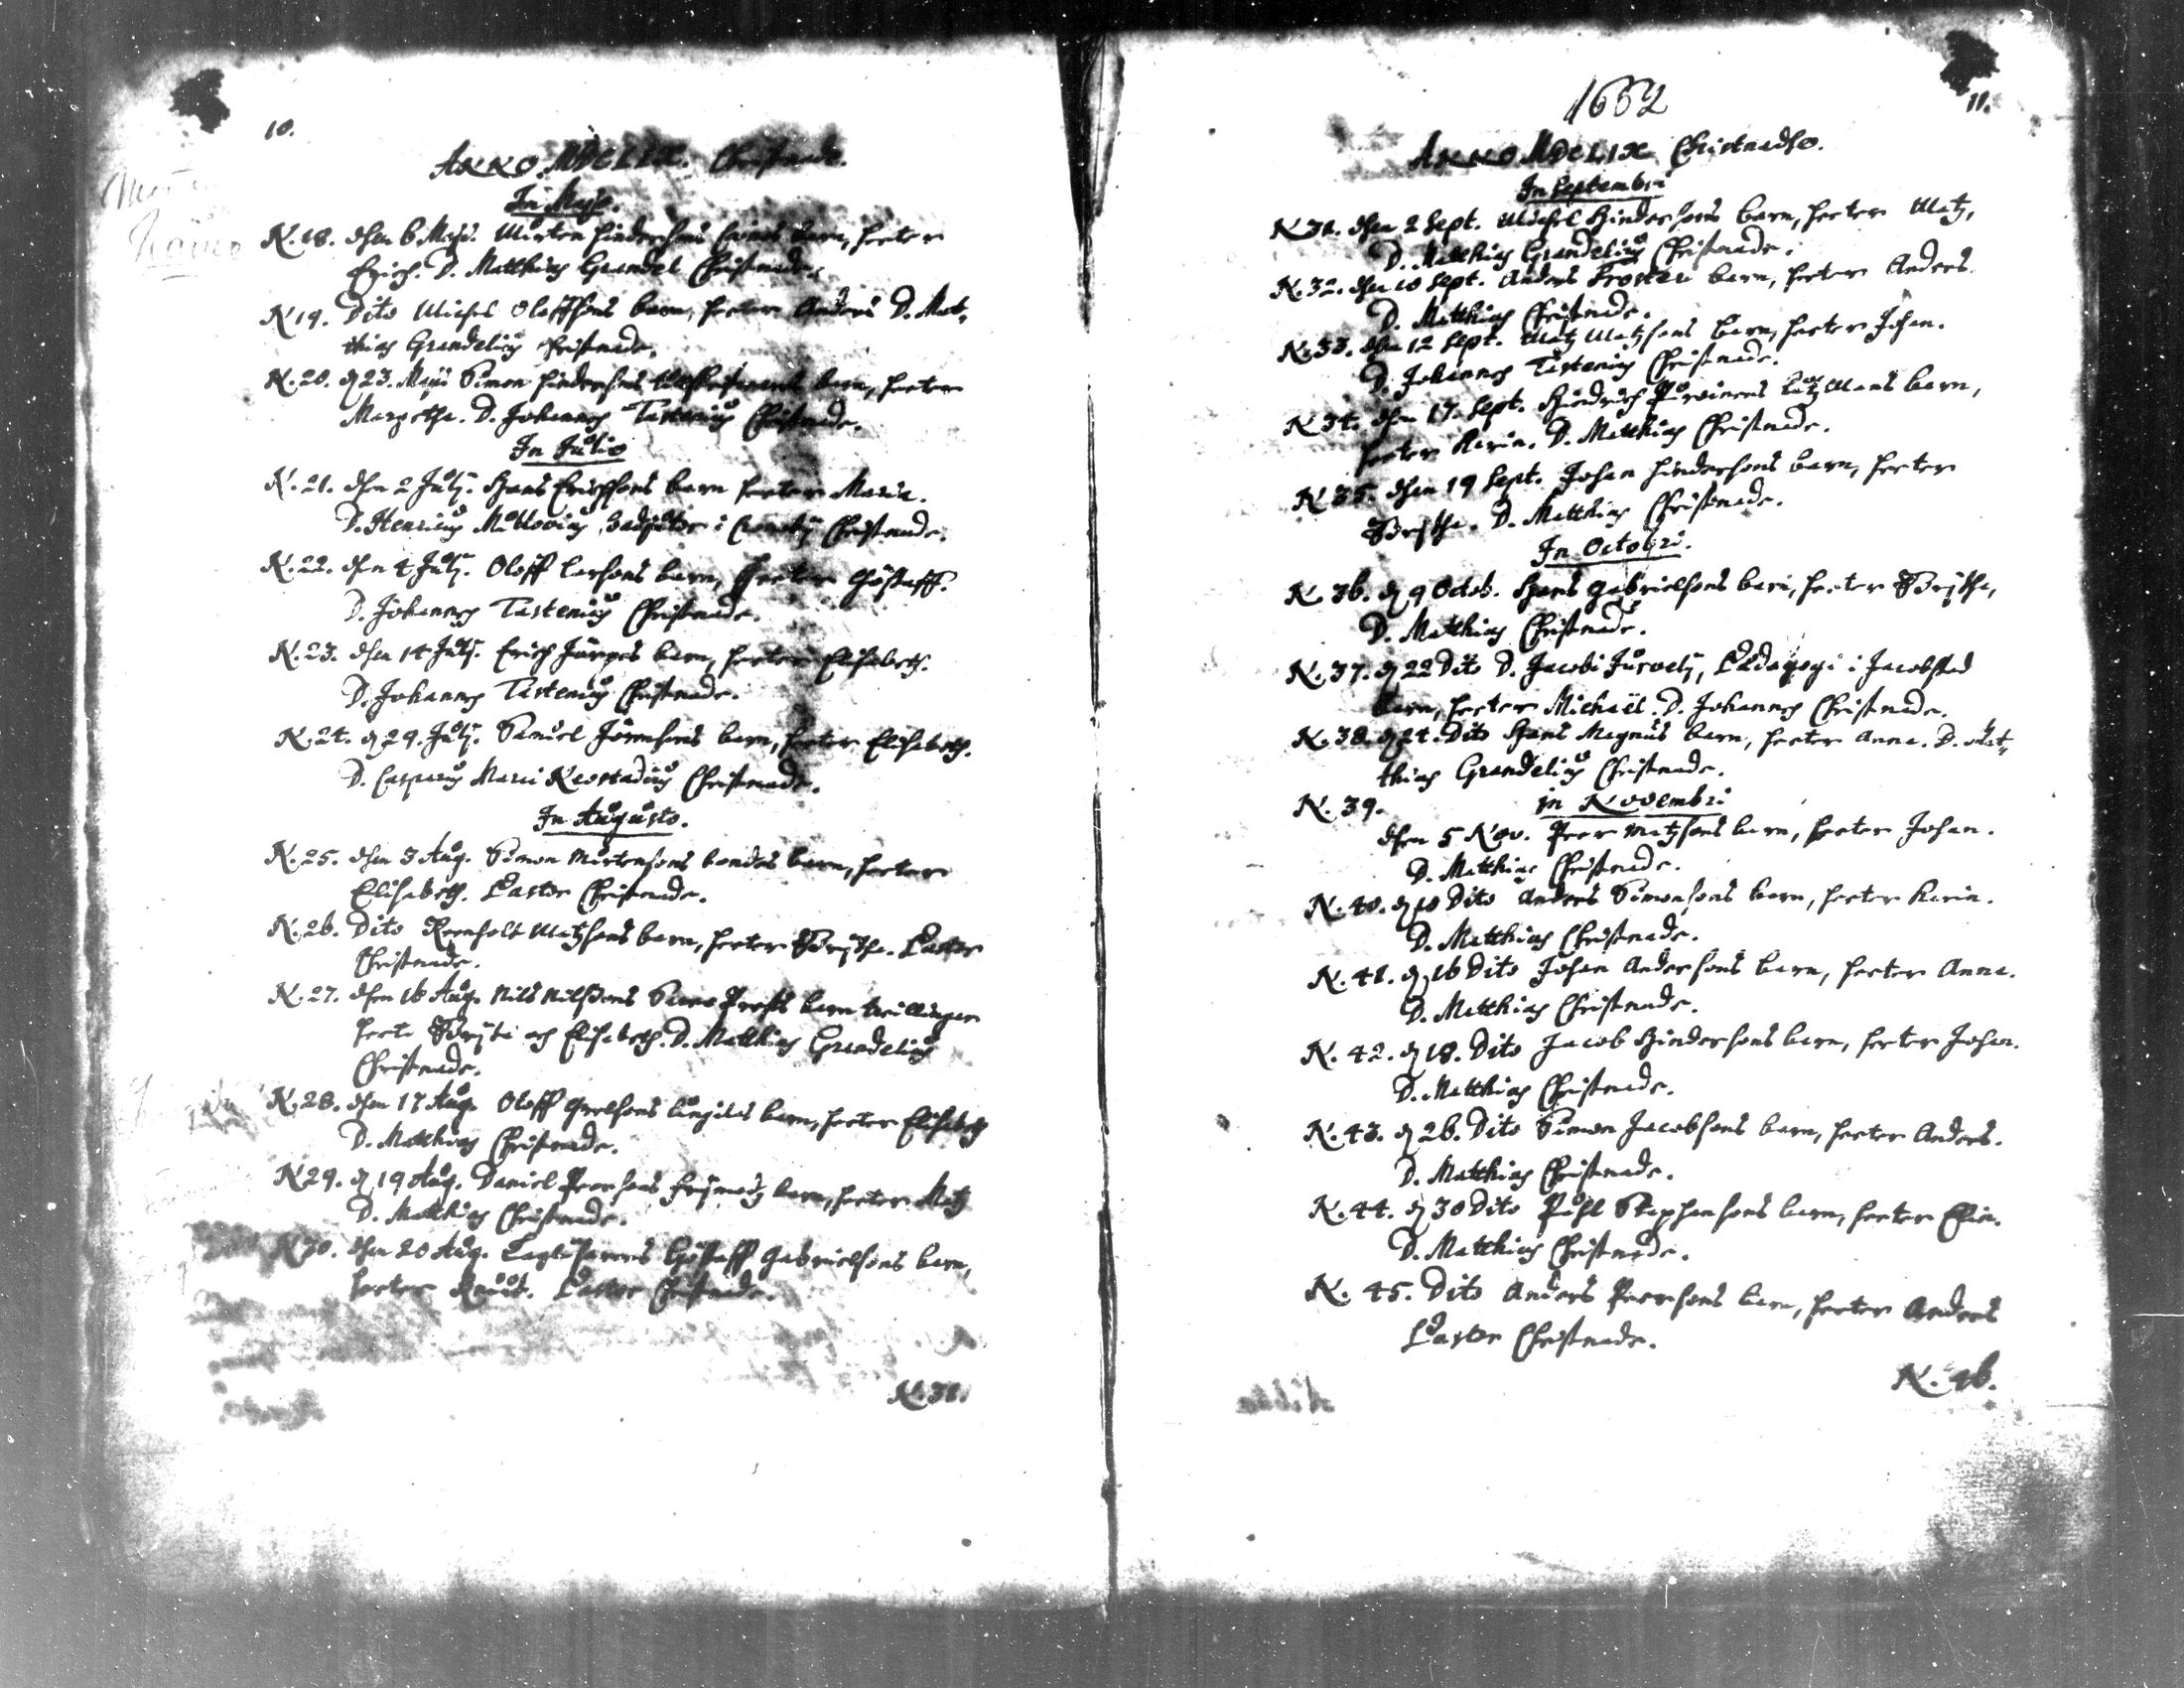 10.
ANNO. MDCLIX. Christnade.
In Majo.
N. 18. dhen 6. Maji. Mårten Hindersons barn, heeter
Erich. D. Matthias Grandel Christnade.
N 19. Dito Michel Oloffsons barn, heeter Anders D. Mat-
thias Grandelius Christnade.
N. 20. d 23. Maji Simon Hindersons barn, heeter
Margetha. D. Johannes Tastenius Christnade.
In Julio
N. 21. dhen 2 Julij. Hans Erichsons barn heeter Maria.
D. Henricus i Christnade.
N. 22. dhen 4 Julij. Oloff Larsons barn, heeter Göstaff.
D. Johannes Tastenius Christnade.
N. 23. dhen 14 Julij. Erich Jörpes barn, heeter Elisabeth.
D. Johannes Tastenius Christnade.
N. 24. d 29. Julij. Samuel Jörensons barn, heeter Elisabeth.
D. Casparus Marci Neostadius Christnade.
In Augusto.
N. 25. dhen 3 Aug. Simon Mårtensons bondes barn, heeter
Elisabeth. Pastor Christnade.
N. 26. Dito Reenholt Matzsons barn, heeter Brijtha. Pastor
Christnade.
N. 27. dhen 16 Aug. Nils Nilssons barn twillingar
heeta Brijta och Elisabeth. D. Matthias Grandelius
Christnade.
N. 28. dhen 17 Aug. Oloff barn, heeter Elisabeth
D. Matthias Christnade.
N 29. d 19 Aug. Daniel Peersons barn, heeter Matz
D. Matthias Christnade.
N 30. dhen 20 Aug. Göstaff Gabrielsons barn,
heeter Knut. Pastor Christnade.
N. 31.
1652
11.
ANNO MDCLIX Christnadhe.
In Septembri
N 31. dhen 2 Sept. Michel Hindersons barn, heeter Matz,
D. Matthias Grandelius Christnade.
N. 32. dhen 10 Sept. Anders Frosten barn, heeter Anders.
D. Matthias Christnade.
N. 33. dhen 12 Sept. Matz Matzsons barn, heeter Johan.
D. Johannes Tastenius Christnade.
N 34. dhen 17. Sept. Hindrich barn,
heeter Karin. D. Matthias Christnade.
N 35. dhen 19 Sept. Johan Hindersons barn, heeter
Brijtha. D. Matthias Christnade.
In Octobri.
N. 36. d 9 Octob. Hans Gabrielsons barn, heeter Brijtha,
D. Matthias Christnade.
N. 37. d 22 Dito D. Jacobi Jurvelij, Pædagogi i Jacobstad
barn, heeter Michaël. D. Johannes Christnade.
N. 38. d 24. Dito Hans Magnus barn, heeter Anna. D. Mat-
thias Grandelius Christnade.
N. 39. in Novembri
dhen 5 Nov. Peer Matzsons barn, heeter Johan.
D. Matthias Christnade.
N. 40. d 10 Dito Anders Simonsons barn, heeter Karin.
D. Matthias Christnade.
N. 41. d 16 Dito Johan Andersons barn, heeter Anna.
D. Matthias Christnade.
N. 42. d 18. Dito Jacob Hindersons barn, heeter Johan.
D. Matthias Christnade.
N. 43. d 26. Dito Simon Jacobsons barn, heeter Anders.
D. Matthias Christnade.
N. 44. d 30 Dito Påhl Stephensons barn, heeter Elin.
D. Matthias Christnade.
N. 45. Dito Anders Peersons barn, heeter Anders
Pastor Christnade.
N. 46.